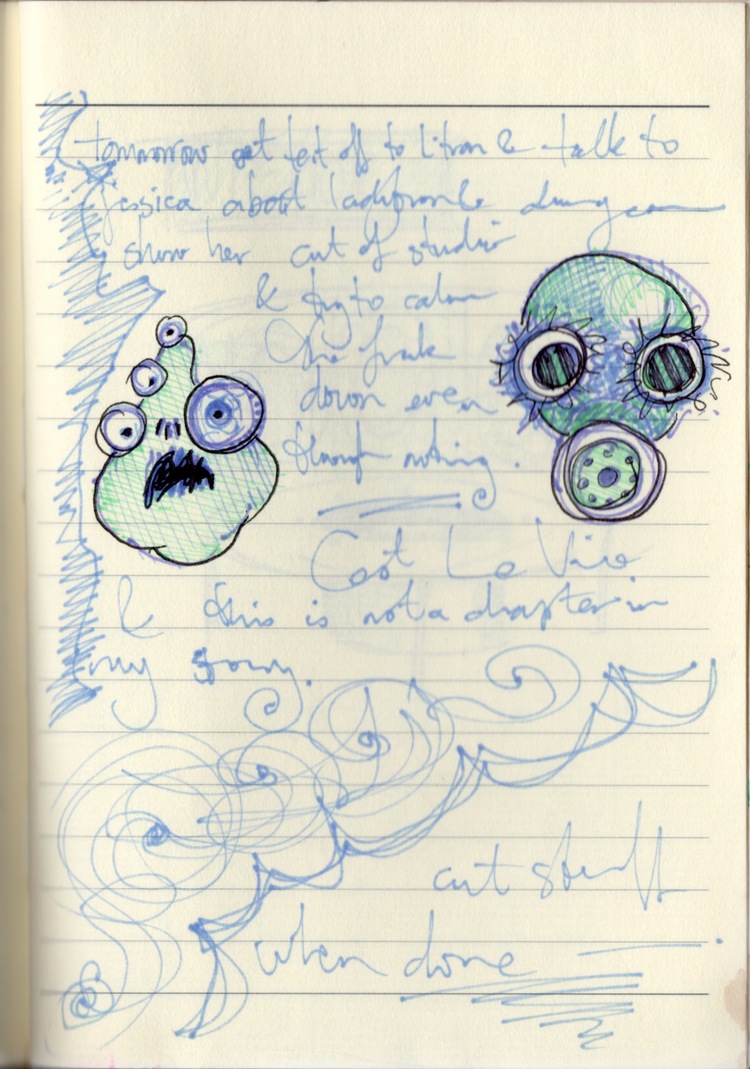 tomorrow get text off to & talk to
Jessica about
show her cut of studio
& try to calm
the freak
down even
though nothing.
Cest La Vie
& this is not a chapter in
my story.
cut stuff
when done